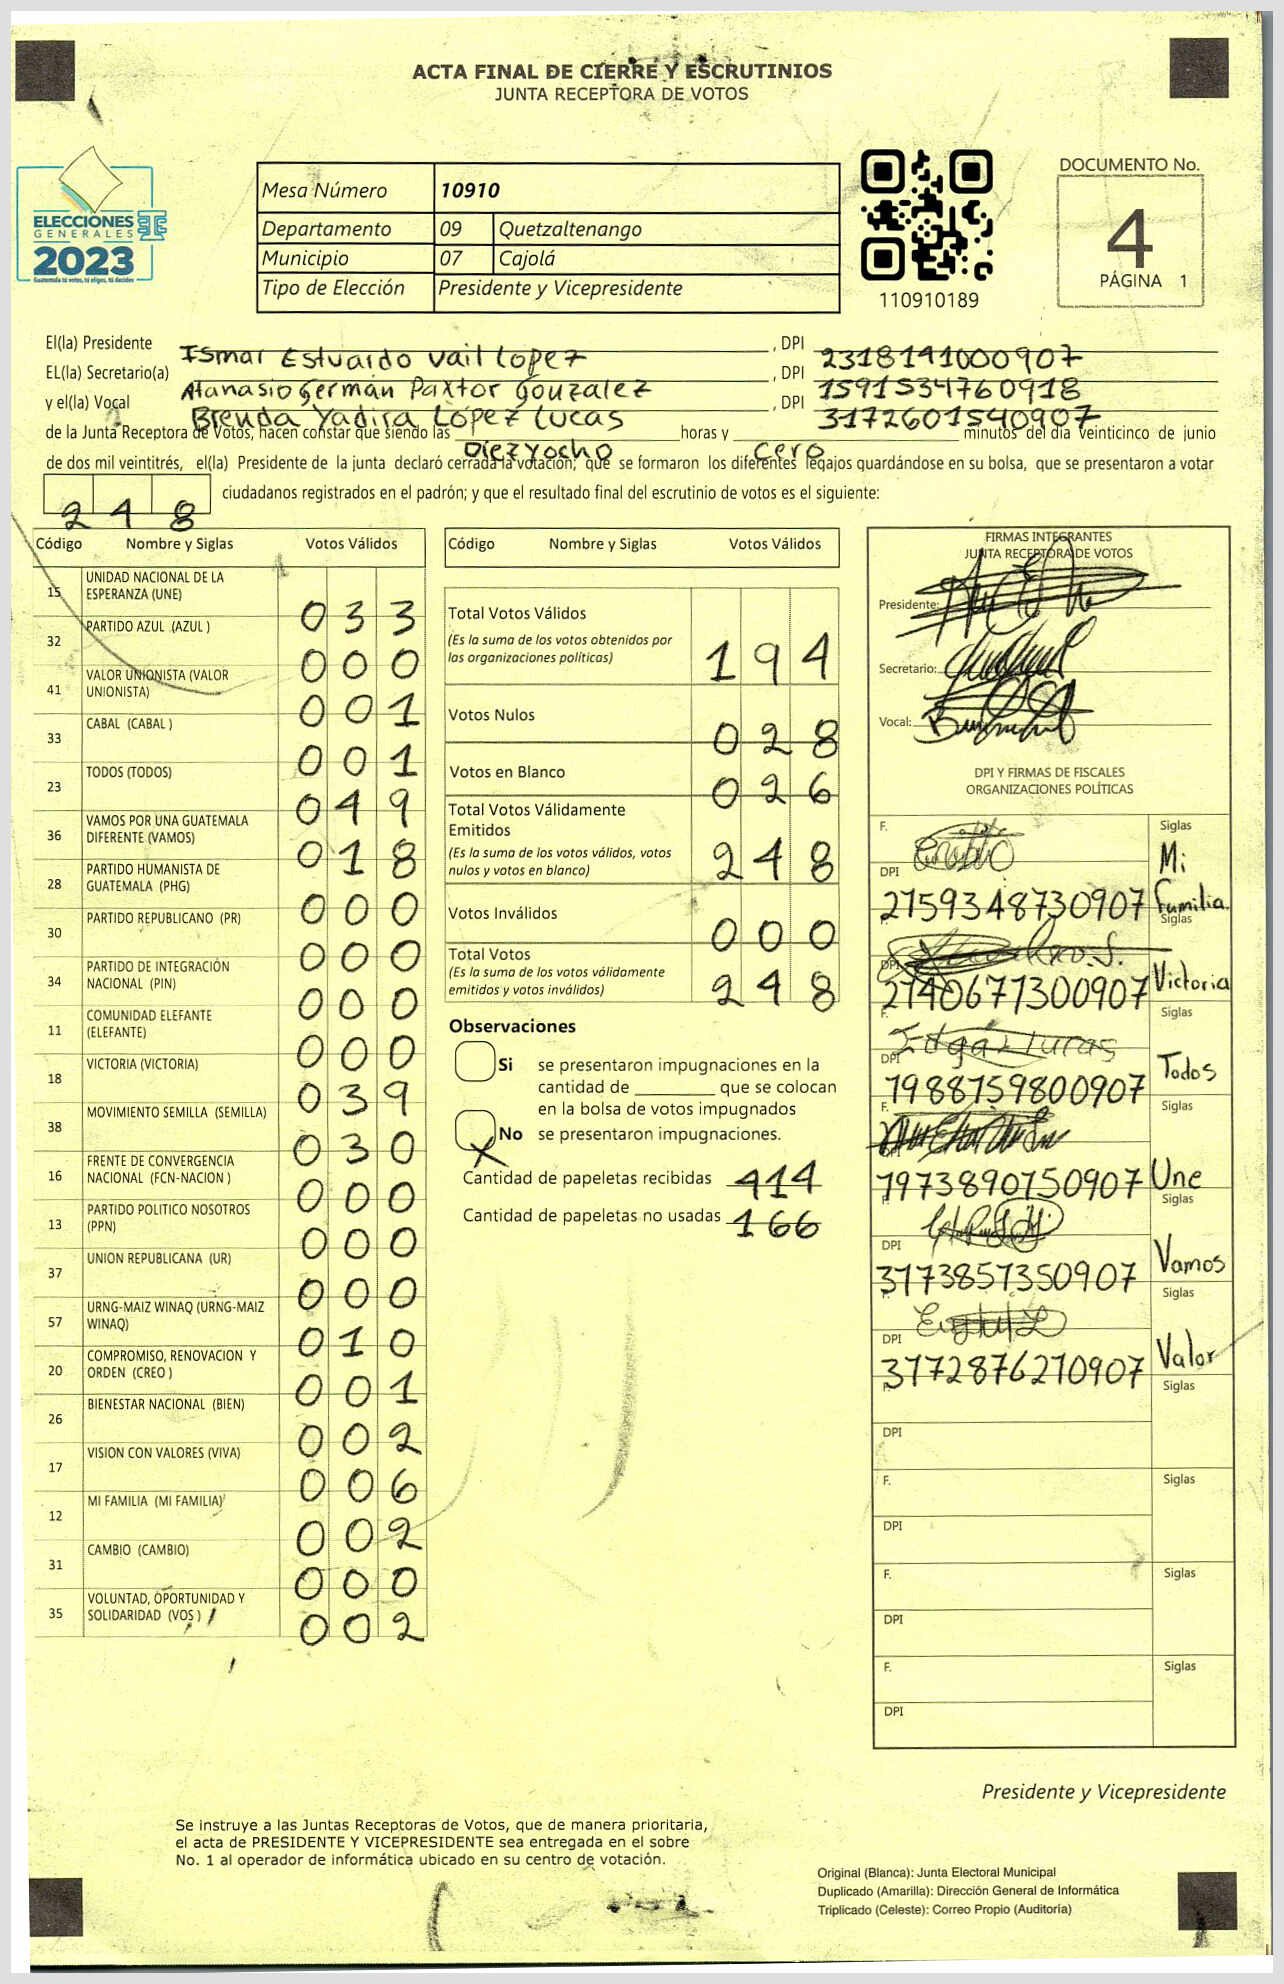 ACTA FINAL DE CIERRE Y ESCRUTINIOS
JUNTA RECEPTORA DE VOTOS
ELECCIONES
GENERALES
2023
Guatemala tú votas, tú eliges, tú decides
Mesa Número 10910
Departamento 09 Quetzaltenango
Municipio 07 Cajolá
Tipo de Elección Presidente y Vicepresidente
110910189
DOCUMENTO No.
4
PÁGINA 1
El(la) Presidente Ismar Estuardo Vail Lopez , DPI 2318141000907
EL(la) Secretario(a) Atanasio Germán Paxtor Gonzalez , DPI 1591534760918
y el(la) Vocal Brenda Yadira López Lucas , DPI 3172601540907
de la Junta Receptora de Votos, hacen constar que siendo las Diez y ocho horas y cero minutos del día veinticinco de junio
de dos mil veintitrés, el(la) Presidente de la junta declaró cerrada la votación; que se formaron los diferentes legajos quardándose en su bolsa, que se presentaron a votar
248 ciudadanos registrados en el padrón; y que el resultado final del escrutinio de votos es el siguiente:
Código Nombre y Siglas Votos Válidos
15 UNIDAD NACIONAL DE LA ESPERANZA (UNE) 033
32 PARTIDO AZUL (AZUL ) 000
41 VALOR UNIONISTA (VALOR UNIONISTA) 001
33 CABAL (CABAL ) 001
23 TODOS (TODOS) 049
36 VAMOS POR UNA GUATEMALA DIFERENTE (VAMOS) 018
28 PARTIDO HUMANISTA DE GUATEMALA (PHG) 000
30 PARTIDO REPUBLICANO (PR) 000
34 PARTIDO DE INTEGRACIÓN NACIONAL (PIN) 000
11 COMUNIDAD ELEFANTE (ELEFANTE) 000
18 VICTORIA (VICTORIA) 039
38 MOVIMIENTO SEMILLA (SEMILLA) 030
16 FRENTE DE CONVERGENCIA NACIONAL (FCN-NACION ) 000
13 PARTIDO POLITICO NOSOTROS (PPN) 000
37 UNION REPUBLICANA (UR) 000
57 URNG-MAIZ WINAQ (URNG-MAIZ WINAQ) 010
20 COMPROMISO, RENOVACION Y ORDEN (CREO ) 001
26 BIENESTAR NACIONAL (BIEN) 002
17 VISION CON VALORES (VIVA) 006
12 MI FAMILIA (MI FAMILIA) 002
31 CAMBIO (CAMBIO) 000
35 VOLUNTAD, OPORTUNIDAD Y SOLIDARIDAD (VOS ) 002
Código Nombre y Siglas Votos Válidos
Total Votos Válidos 194
(Es la suma de los votos obtenidos por
las organizaciones políticas)
Votos Nulos 028
Votos en Blanco 026
Total Votos Válidamente
Emitidos 248
(Es la suma de los votos válidos, votos
nulos y votos en blanco)
Votos Inválidos 000
Total Votos 248
(Es la suma de los votos válidamente
emitidos y votos inválidos)
Observaciones
Si se presentaron impugnaciones en la
cantidad de ________ que se colocan
en la bolsa de votos impugnados
X No se presentaron impugnaciones.
Cantidad de papeletas recibidas 414
Cantidad de papeletas no usadas 166
FIRMAS INTEGRANTES
JUNTA RECEPTORA DE VOTOS
Presidente:
Secretario:
Vocal:
DPI Y FIRMAS DE FISCALES
ORGANIZACIONES POLÍTICAS
F. Siglas
DPI 2759348730907 Mi Familia
F. Siglas
DPI 2740677300907 Victoria
F. Edgar Lucas Siglas
DPI 7988759800907 Todos
F. Siglas
DPI 7973890750907 Une
F. Siglas
DPI 3773857350907 Vamos
F. Siglas
DPI 3772876270907 Valor
F. Siglas
DPI
F. Siglas
DPI
F. Siglas
DPI
F. Siglas
DPI
Presidente y Vicepresidente
Se instruye a las Juntas Receptoras de Votos, que de manera prioritaria,
el acta de PRESIDENTE Y VICEPRESIDENTE sea entregada en el sobre
No. 1 al operador de informática ubicado en su centro de votación.
Original (Blanca): Junta Electoral Municipal
Duplicado (Amarilla): Dirección General de Informática
Triplicado (Celeste): Correo Propio (Auditoría)